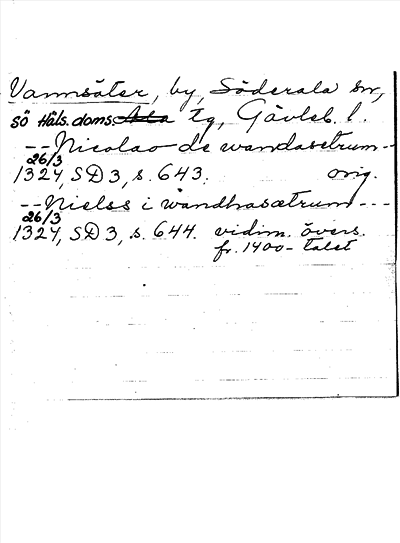 Vannsäter, by, Söderala sn,
sö Häls. doms. Ala tg, Gävleb. l.
-- Nicolao de wandasætrum --
26/3
1327, SD 3, s. 643. orig.
-- Nielss i wandhasætrum ---
26/3
1327, SD 3, s. 644. vidim. övers.
fr. 1400-talet